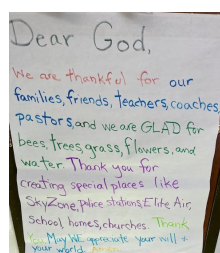 Dear God,
We are thankful for our
families, friends, teachers, coaches,
pastors, and we are GLAD for
bees, trees, grass, flowers, and
water. Thank you for
creating special places like
SkyZone, police stations, Elite Air,
School homes, churches. Thank
You May WE appreciate your will +
your world.